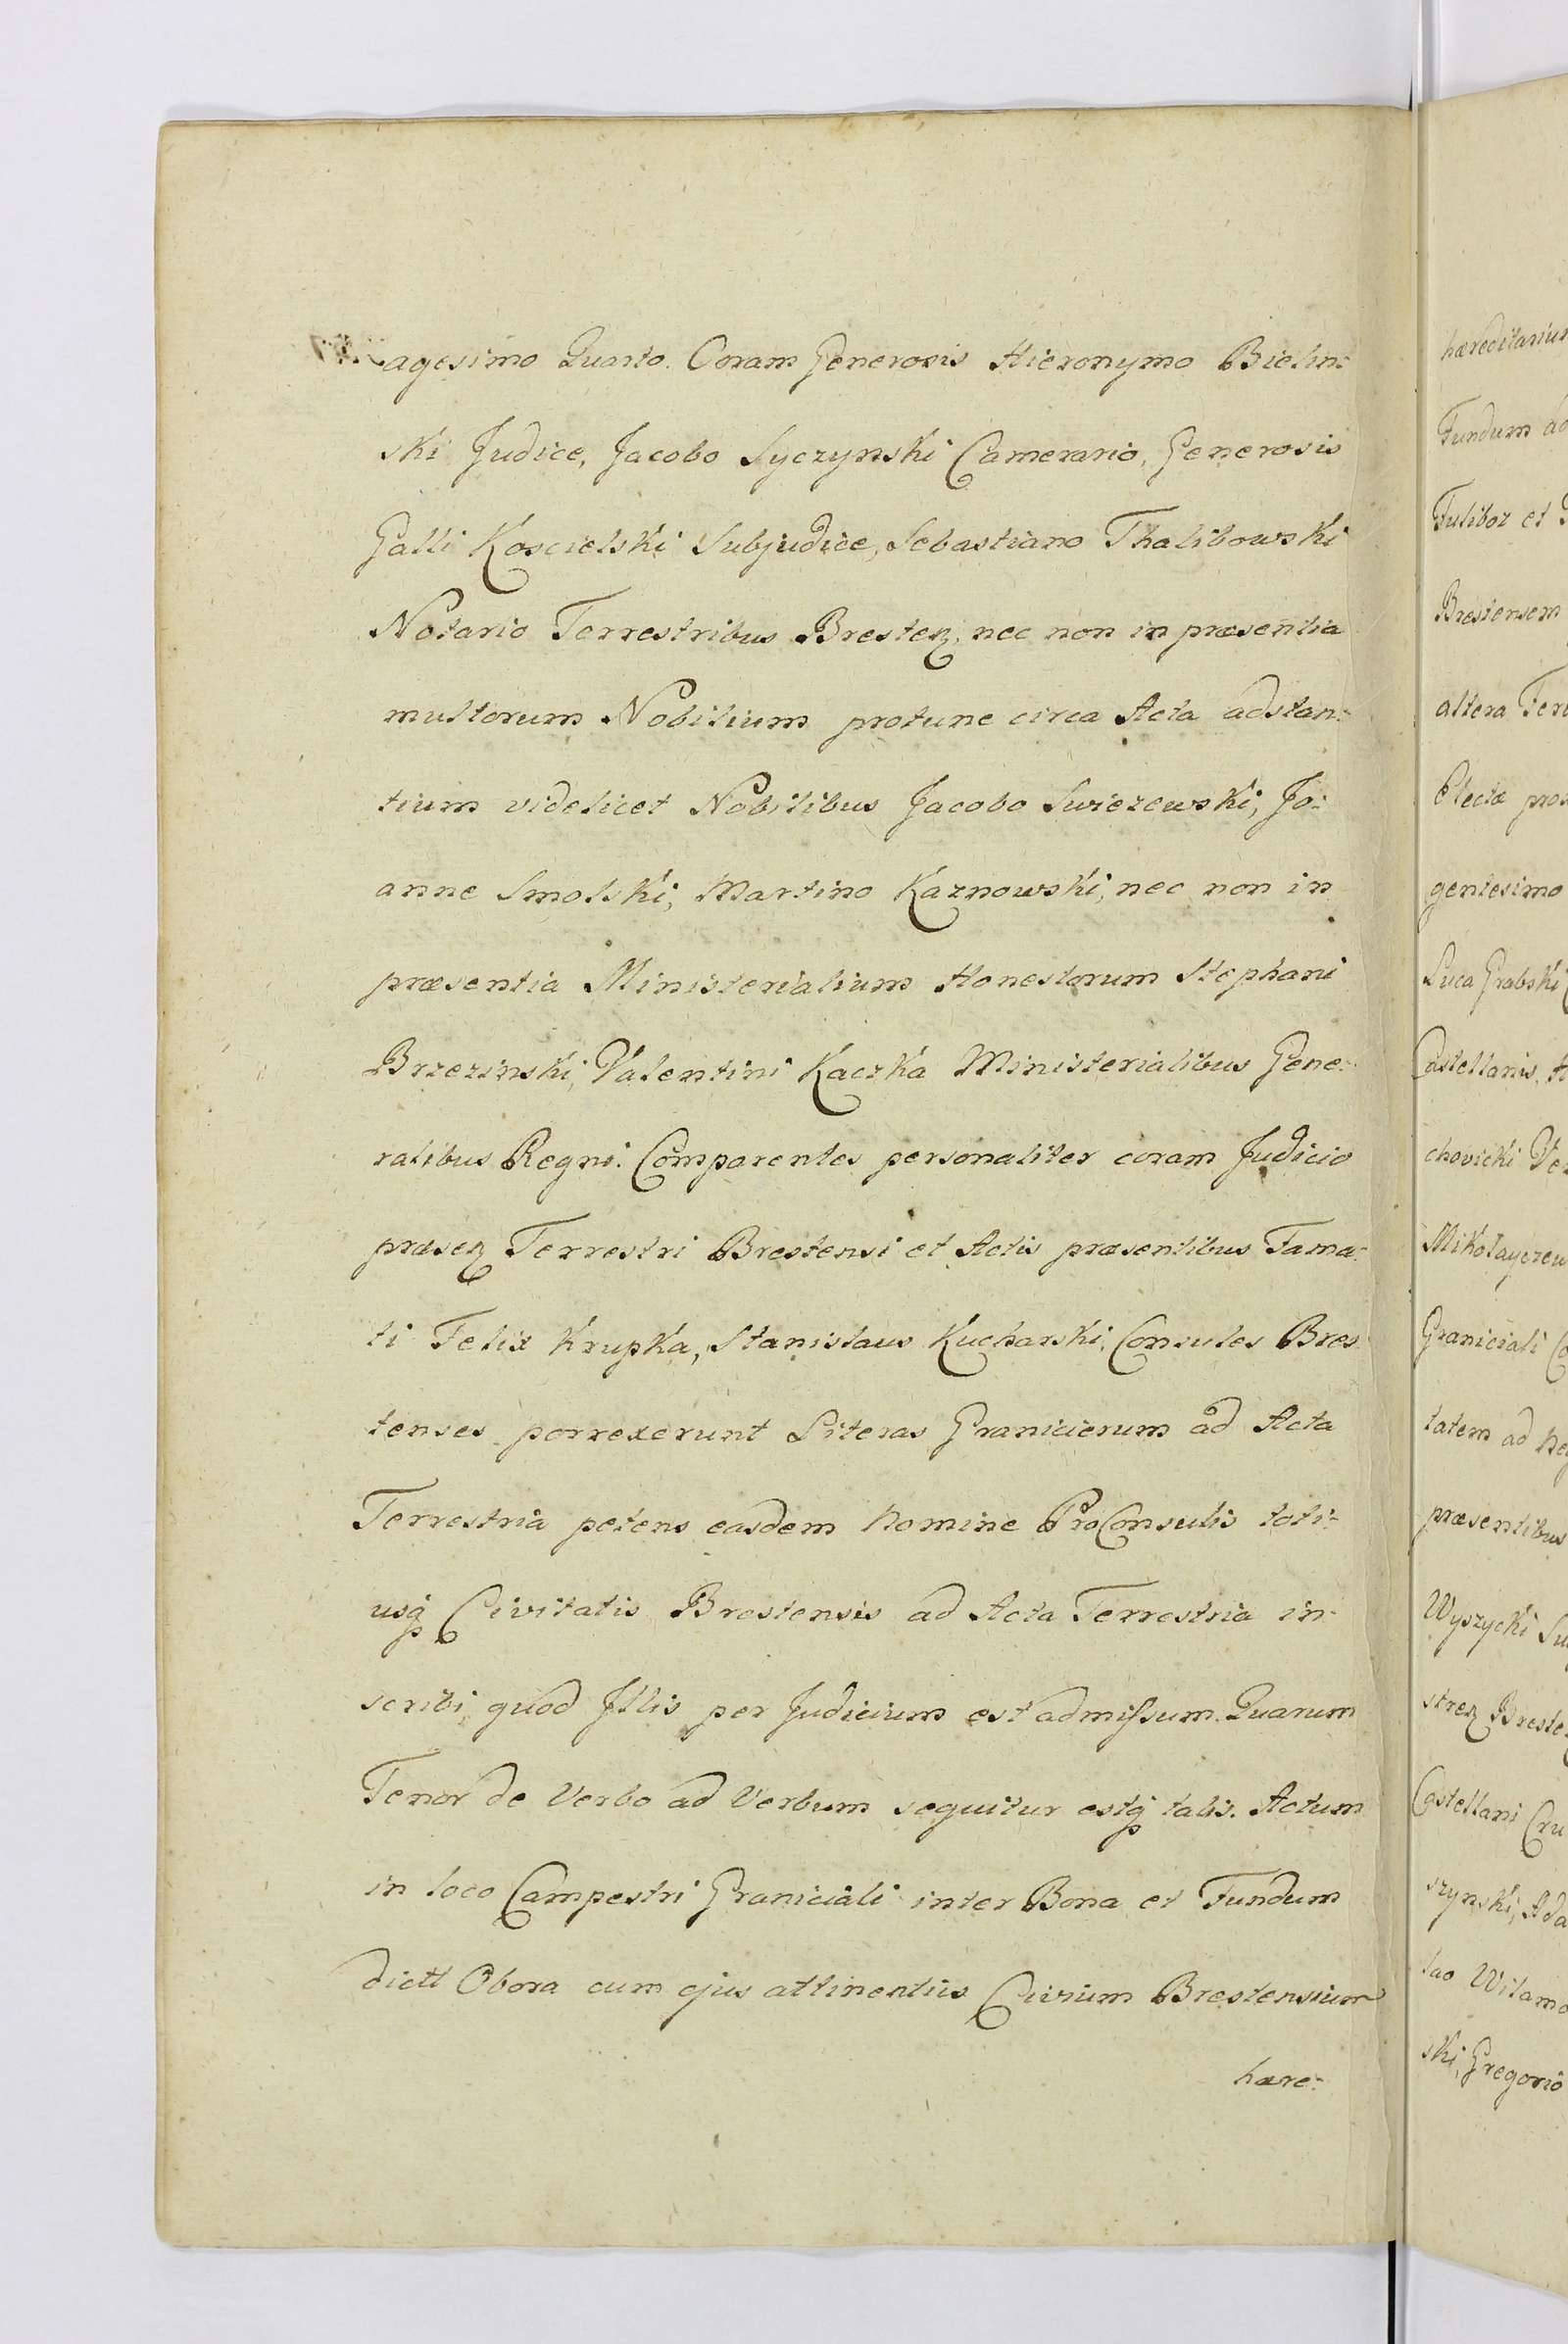 agesimo Quarto. Coram Generosis Hieronymo Bielin:
ski Judice, Jacobo Syczynski Camerario, Generosis
Galli Koscielski Subjudice, Sebastiano Thalibowski
Notario Terrestribus Bresteꝶ. nec non in præsentia
multorum Nobilium protunc circa Acta adstan:
tium videlicet Nobilibus Jacobo Swiezewski, Jo:
anne Smolski, Martino Kaznowski, nec non in
præsentia Ministerialium Honestorum Stephani
Brzezinski, Valentini Kaczka Ministerialibus Gene:
ralibus Regni. Comparentes personaliter coram Judicio
præseꝶ Terrestri Brestensi et Actis præsentibus Fama:
ti Felix Krupka, Stanislaus Kucharski, Consules Bres
tenses porrexerunt Literas Granicierum ad Acta
Terrestria petens easdem Nomine ProConsulis toti:
usq̃ Civitatis Brestensis ad Acta Terrestria in:
scribi, quod Illis per Judicium est admiſsum. Quarum
Tenor de Verbo ad Verbum sequitur estq̃ talis. Actum
in loco Campestri Graniciali inter Bona et Fundum
dictt Obora cum ejus attinentiis Civium Brestensium
hære:
hæreditarium
Fundum ad
Fulibor et
Brestensem
altera
Electæ
gentesimo
Luca Grabski
Castellanis.
chovicki
Graniciali
tatem ad
præsentibus
Wyszycki
streꝶ
Castellani
szynski,
lao
ski, Gregorio